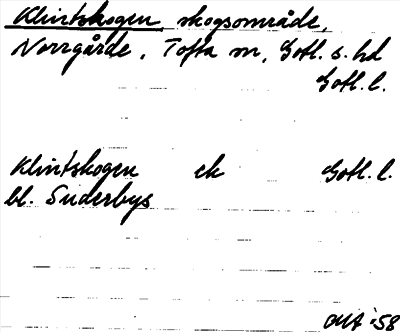 Klintskogen skogsområde,
Norrgårde, Tofta sn, Gotl. s. hd
Gotl. l.
Klintskogen ek Gotl. l.
bl. Suderbys
OUA '58